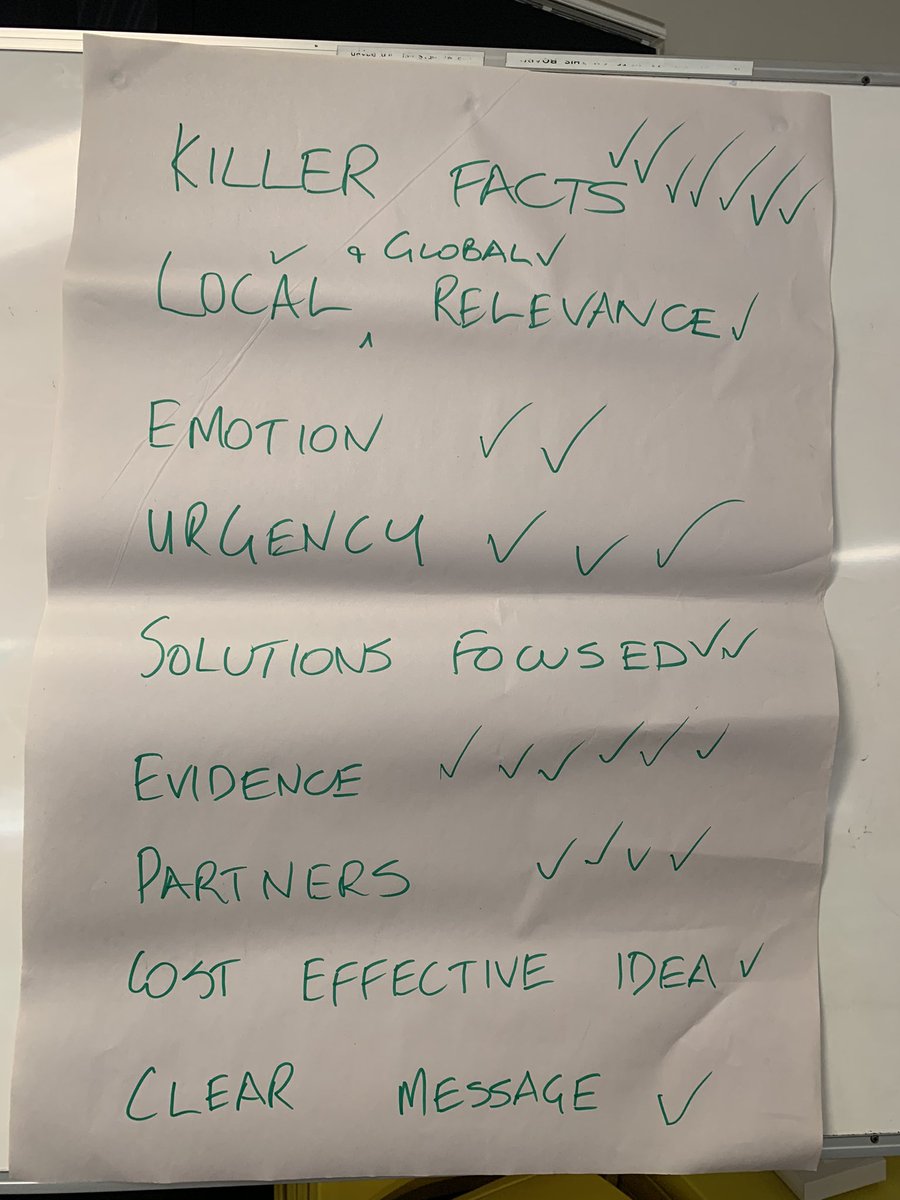 KILLER FACTS ✓✓✓✓✓✓✓
✓ & GLOBAL ✓
LOCAL ^ RELEVANCE ✓
EMOTION ✓ ✓
URGENCY ✓ ✓ ✓
SOLUTIONS FOCUSED ✓✓
EVIDENCE ✓ ✓ ✓ ✓ ✓ ✓
PARTNERS ✓ ✓ ✓ ✓
COST EFFECTIVE IDEA ✓
CLEAR MESSAGE ✓